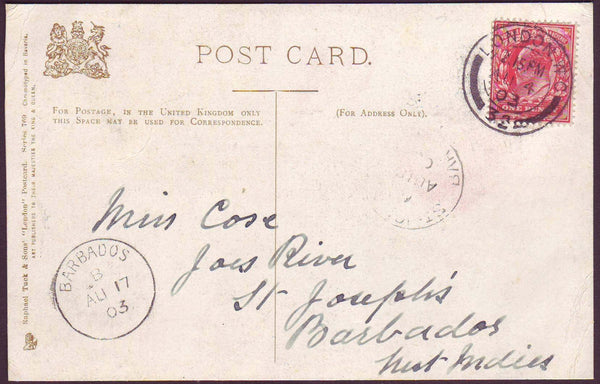 POST CARD.
FOR POSTAGE, IN THE UNITED KINGDOM ONLY
THIS SPACE MAY BE USED FOR CORRESPONDENCE.
(FOR ADDRESS ONLY).
Raphael Tuck & Sons' "London" Postcard. Series 769 Chromotyped in Bavaria.
ART PUBLISHERS TO THEIR MAJESTIES THE KING & QUEEN.
LONDON
15 PM
4
03
32
BARBADOS
B
AU 17
03
Miss Cose
Joes River
St Joseph's
Barbados
West Indies